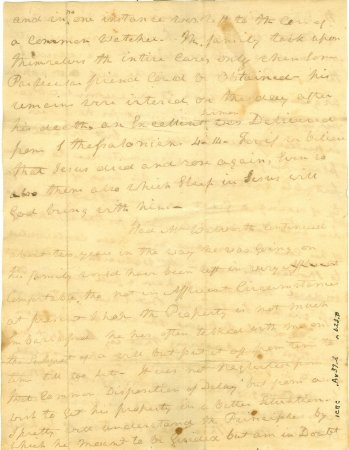 and in no one instance was left to the Care of
a common Watcher. The family took upon
themselves the intire Care, only when some
Particular friend Could be Obtained his
remains were intered on the day after
his death, an Excellent Sermon Delivered
from 1 thessalonians 4. 14. For if we believe
that Jesus died and rose again, Even so
them also which Sleep in Jesus will
God bring with him.
Had Mr continued
about two years in the way he was going on
his family would have been left in very
Comfortable, tho not in Affluent Circumstances
at present I hope the Property is not much
he has often talked with me on
the Subject of a will but put it off from time to
time till too late. It was not Neglected from
that Common Disposition of Delay but from a
wish to get his property in a better Situation.
I pretty well understand the Principle by
which he meant to be Guided but am in Doubt